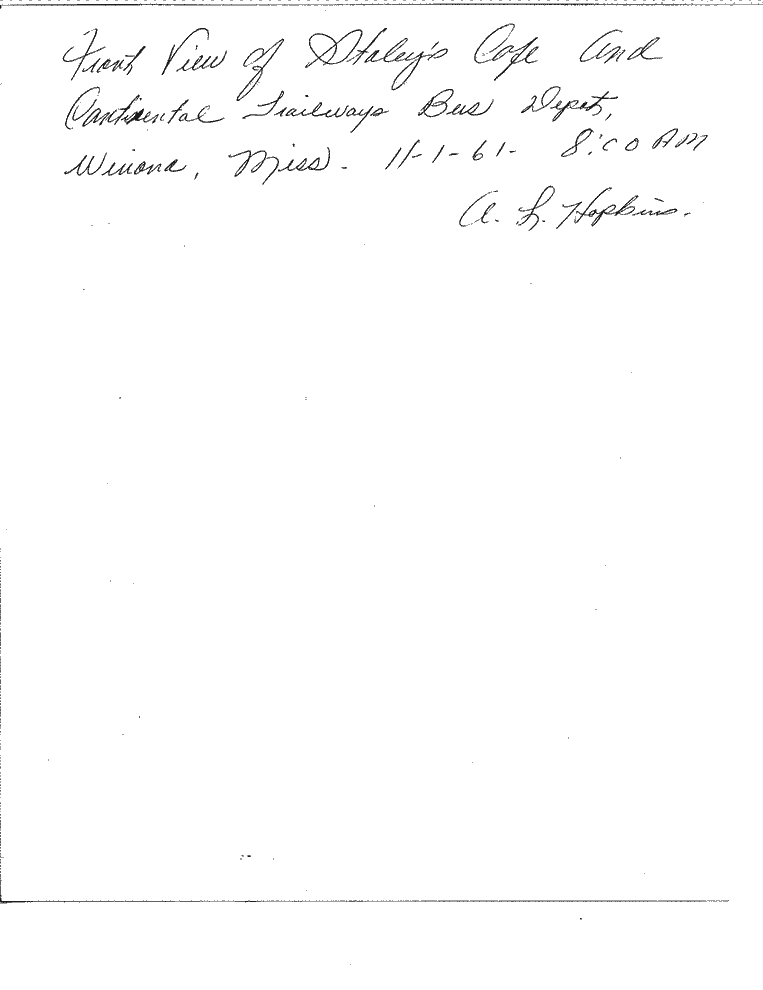 Front View of Staley's Cafe And
Continental Trailways Bus Depot,
Winona, Miss. 11-1-61- 8:00 AM
A. L. Hopkins.